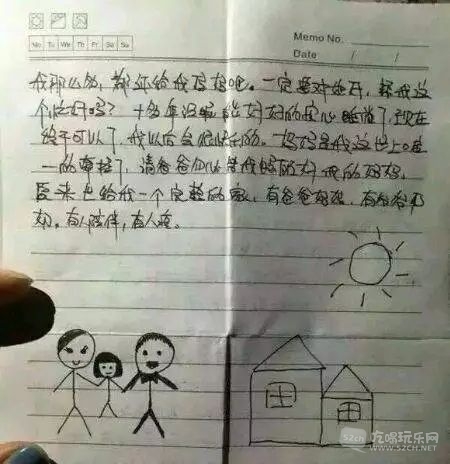 Memo No.
Mo Tu We Th Fr Sa Su
Date / /
我那么多,都还给我妈妈吧。一定要对她好,帮我这
个忙好吗?十多年没有能好好的安心睡觉了,现在
终于可以了,我以后会很快乐的。妈妈是我这世上唯
一的牵挂了,请爸爸替我照顾好我的妈妈,
后来也给我一个完整的家,有爸爸妈妈,有爷爷奶
奶。有人陪伴,有人疼。
吃喝玩乐网
52CH.NET